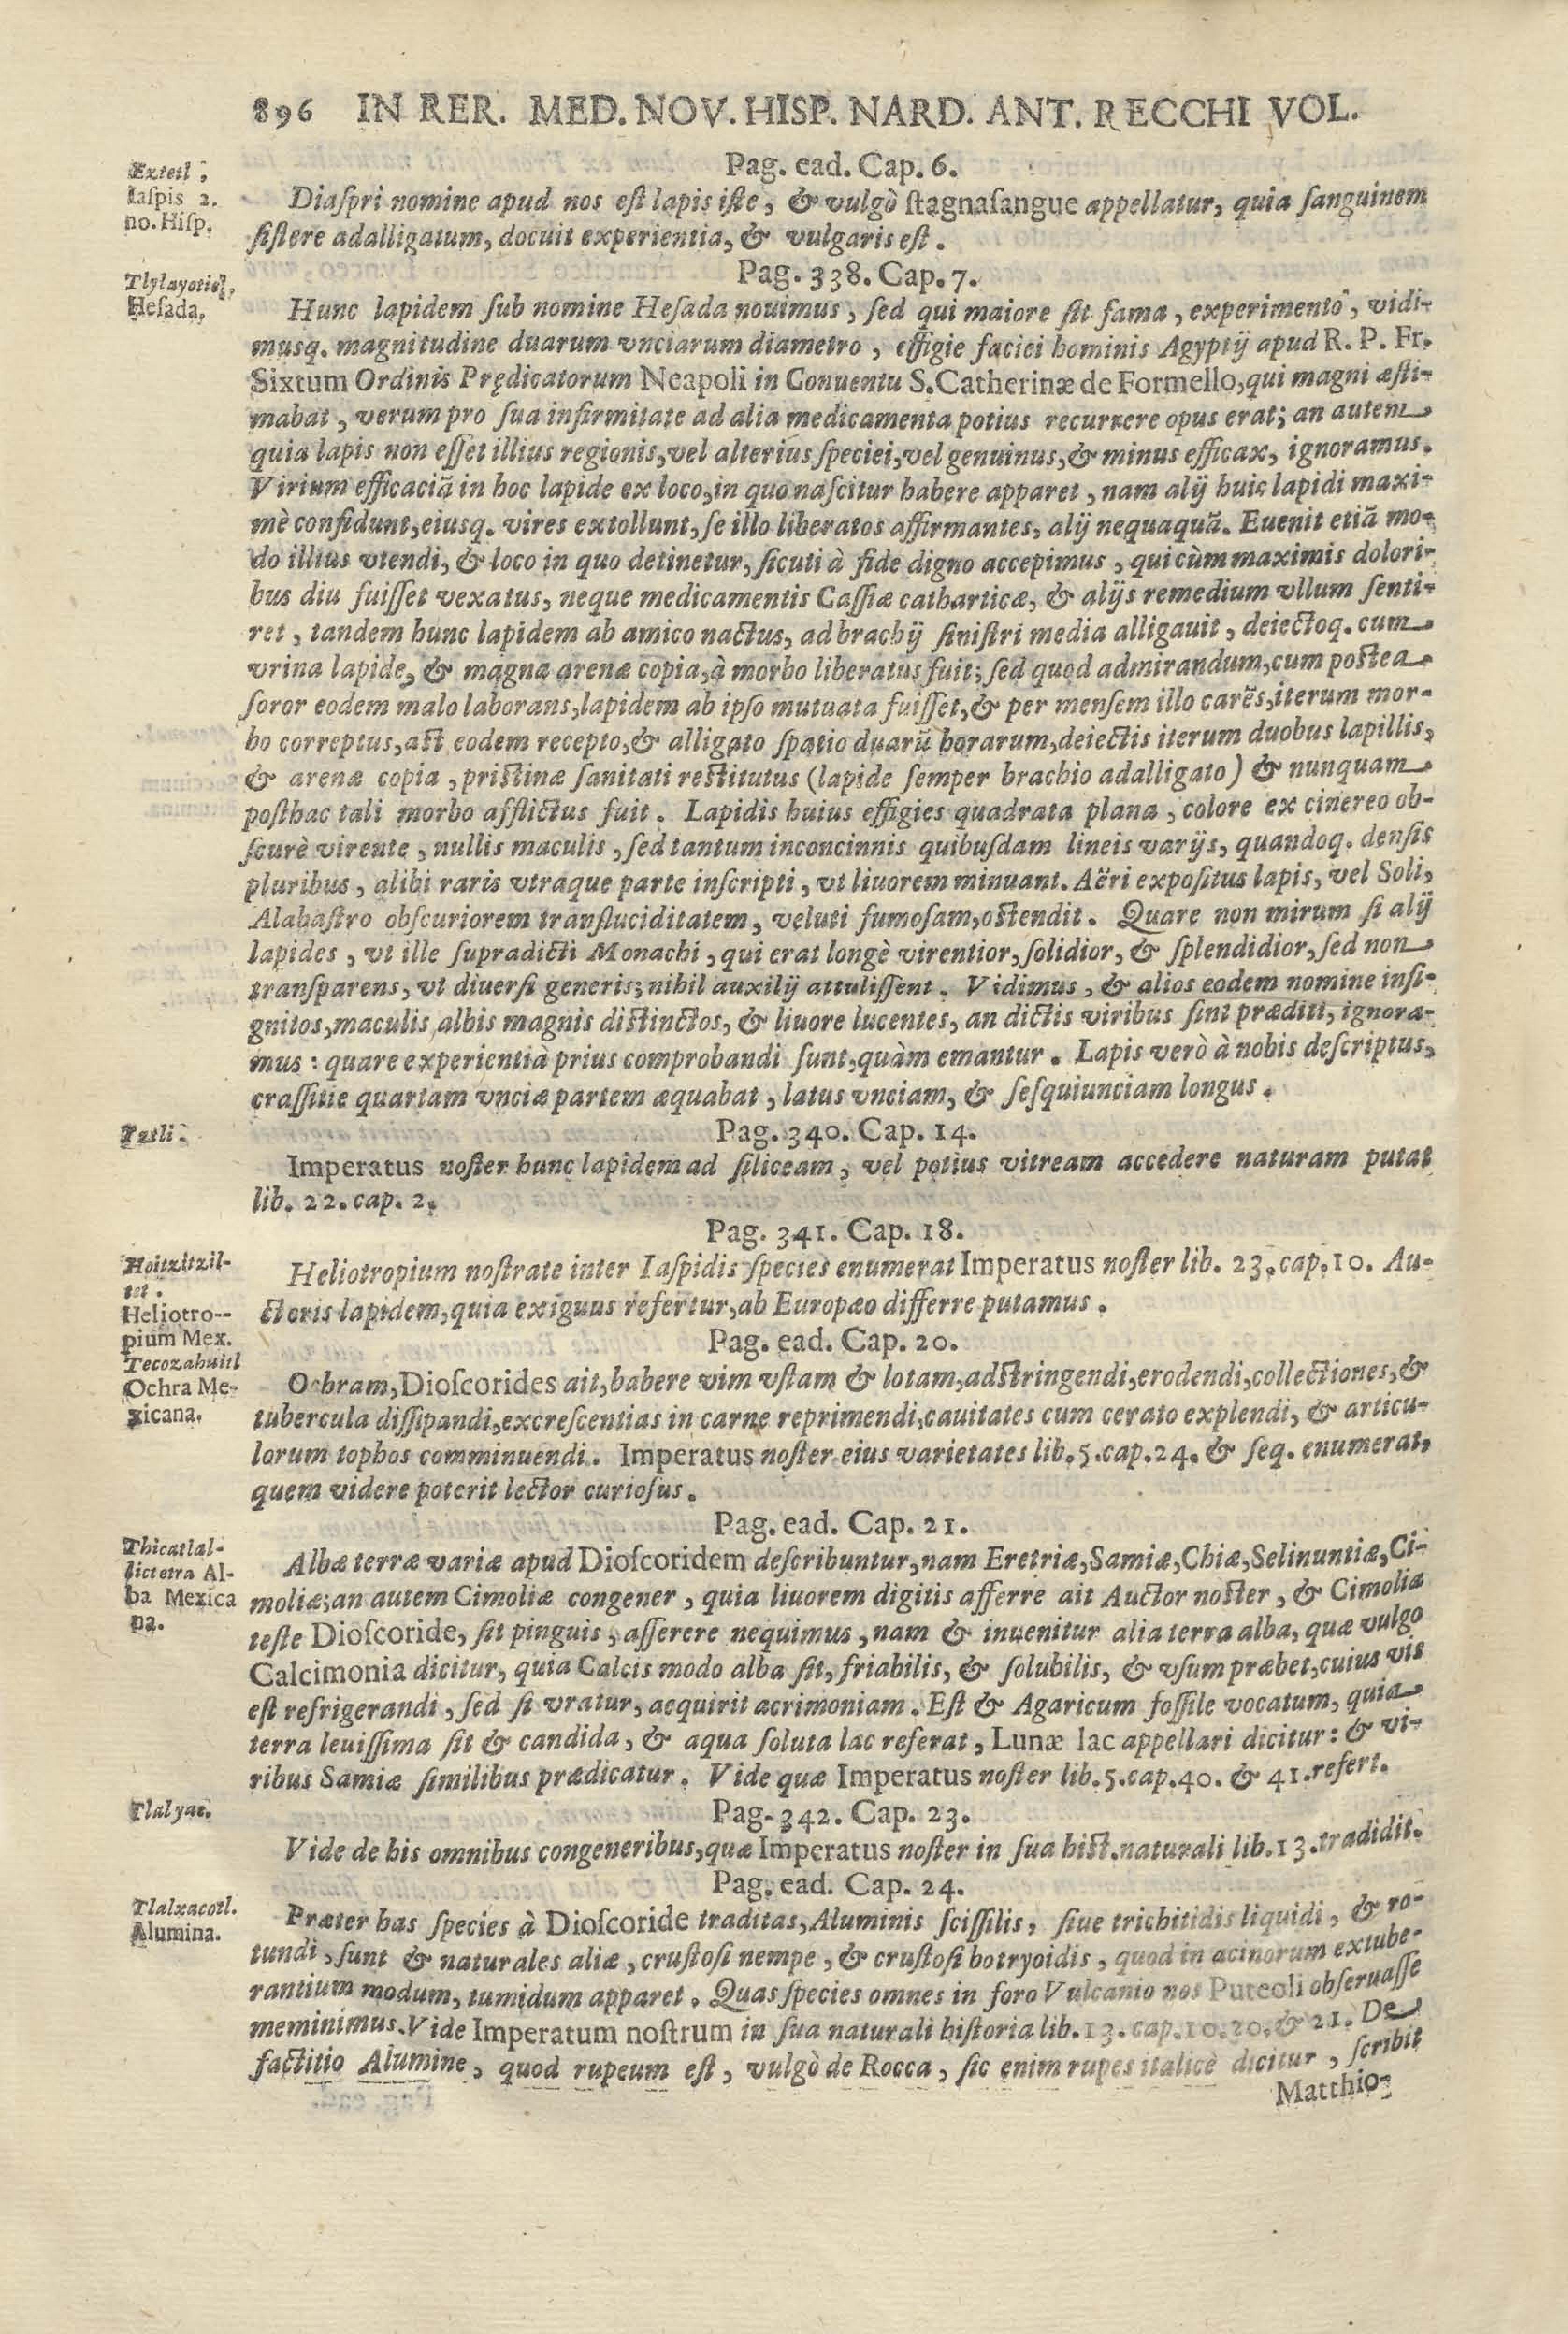 896 IN RER. MED. NOV. HISP. NARD. ANT. RECCHI VOL.
Pag. ead. Cap. 6.
Extetl;
Iaſpis 2.
no. Hiſp.
Diaſpri nomine apud nos eſt lapis iſte, & vulgò ſtagnaſangue appellatur, quia ſanguinem
ſiſtere adalligatum, docuit experientia, & vulgaris eſt.
Pag. 338. Cap. 7.
Tlylayotic,
Heſada.
Hunc lapidem ſub nomine Heſada nouimus, ſed qui maiore ſit fama, experimento, vidi-
musq. magnitudine duarum vnciarum diametro, effigie faciei hominis Ægyptij apud R. P. Fr.
Sixtum Ordinis Prędicatorum Neapoli in Conuentu S. Catherinæ de Formello, qui magni æſti-
mabat, verum pro ſua infirmitate ad alia medicamenta potius recurrere opus erat; an autem
quia lapis non eſſet illius regionis, vel alterius ſpeciei, vel genuinus, & minus efficax, ignoramus.
Virium efficaciā in hoc lapide ex loco, in quo naſcitur habere apparet, nam alij huic lapidi maxi-
mè confidunt, eiusq. vires extollunt, ſe illo liberatos affirmantes, alij nequaquā. Euenit etiā mo-
do illius vtendi, & loco in quo detinetur, ſicuti à fide digno accepimus, qui cùm maximis dolori-
bus diu fuiſſet vexatus, neque medicamentis Caſſiæ catharticæ, & alijs remedium vllum ſenti-
ret, tandem hunc lapidem ab amico nactus, ad brachij ſiniſtri media alligauit, deiectoq. cum
vrina lapide, & magna arenæ copia, à morbo liberatus fuit; ſed quod admirandum, cum poſtea
ſoror eodem malo laborans, lapidem ab ipſo mutuata fuiſſet, & per menſem illo carēs, iterum mor-
bo correptus, aſt eodem recepto, & alligato ſpatio duarū horarum, deiectis iterum duobus lapillis,
& arenæ copia, priſtinæ ſanitati reſtitutus (lapide ſemper brachio adalligato) & nunquam
poſthac tali morbo afflictus fuit. Lapidis huius effigies quadrata plana, colore ex cinereo ob-
ſcurè virente, nullis maculis, ſed tantum inconcinnis quibuſdam lineis varijs, quandoq. denſis
pluribus, alibi raris vtraque parte inſcripti, vt liuorem minuant. Aëri expoſitus lapis, vel Soli,
Alabaſtro obſcuriorem tranſluciditatem, veluti fumoſam, oſtendit. Quare non mirum ſi alij
lapides, vt ille ſupradicti Monachi, qui erat longè virentior, ſolidior, & ſplendidior, ſed non
tranſparens, vt diuerſi generis; nihil auxilij attuliſſent. Vidimus, & alios eodem nomine inſi-
gnitos, maculis albis magnis diſtinctos, & liuore lucentes, an dictis viribus ſint præditi, ignora-
mus: quare experientia prius comprobandi ſunt, quàm emantur. Lapis verò à nobis deſcriptus,
craſſitie quartam vnciæ partem æquabat, latus vnciam, & ſeſquiunciam longus.
Pag. 340. Cap. 14.
Iztli.
Imperatus noſter hunc lapidem ad ſiliceam, vel potius vitream accedere naturam putat
lib. 22. cap. 2.
Pag. 341. Cap. 18.
Hoitzitzil-
tet.
Heliotro--
pium Mex.
Heliotropium noſtrate inter Iaſpidis ſpecies enumerat Imperatus noſter lib. 23. cap. 10. Au-
ctoris lapidem, quia exiguus refertur, ab Europæo differre putamus.
Pag. ead. Cap. 20.
Tecozahuitl
Ochra Me-
xicana.
Ochram, Dioſcorides ait, habere vim vſtam & lotam, adſtringendi, erodendi, collectiones, &
tubercula diſſipandi, excreſcentias in carne reprimendi, cauitates cum cerato explendi, & articu-
lorum tophos comminuendi. Imperatus noſter eius varietates lib. 5. cap. 24. & ſeq. enumerat,
quem videre poterit lector curioſus.
Pag. ead. Cap. 21.
Thicatlal-
lictetra Al-
ba Mexica
na.
Albæ terræ variæ apud Dioſcoridem deſcribuntur, nam Eretriæ, Samiæ, Chiæ, Selinuntiæ, Ci-
moliæ; an autem Cimoliæ congener, quia liuorem digitis afferre ait Auctor noſter, & Cimolia
teſte Dioſcoride, ſit pinguis, aſſerere nequimus, nam & inuenitur alia terra alba, quæ vulgo
Calcimonia dicitur, quia Calcis modo alba ſit, friabilis, & ſolubilis, & vſum præbet, cuius vis
eſt refrigerandi, ſed ſi vratur, acquirit acrimoniam. Eſt & Agaricum foſſile vocatum, quia
terra leuiſſima ſit & candida, & aqua ſoluta lac referat, Lunæ lac appellari dicitur: & vi-
ribus Samiæ ſimilibus prædicatur. Vide quæ Imperatus noſter lib. 5. cap. 40. & 41. refert.
Pag. 342. Cap. 23.
Tlalyac.
Vide de his omnibus congeneribus, quæ Imperatus noſter in ſua hiſt. naturali lib. 13. tradidit.
Pag. ead. Cap. 24.
Tlalxacotl.
Alumina.
Præter has ſpecies à Dioſcoride traditas, Aluminis ſciſſilis, ſiue trichitidis liquidi, & ro-
tundi, ſunt & naturales aliæ, cruſtoſi nempe, & cruſtoſi botryoidis, quod in acinorum extube-
rantium modum, tumidum apparet. Quas ſpecies omnes in foro Vulcanio nos Puteoli obſeruaſſe
meminimus. Vide Imperatum noſtrum in ſua naturali hiſtoria lib. 13. cap. 10. 20. & 21. De
factitio Alumine, quod rupeum eſt, vulgò de Rocca, ſic enim rupes italicè dicitur, ſcribit
Matthio-